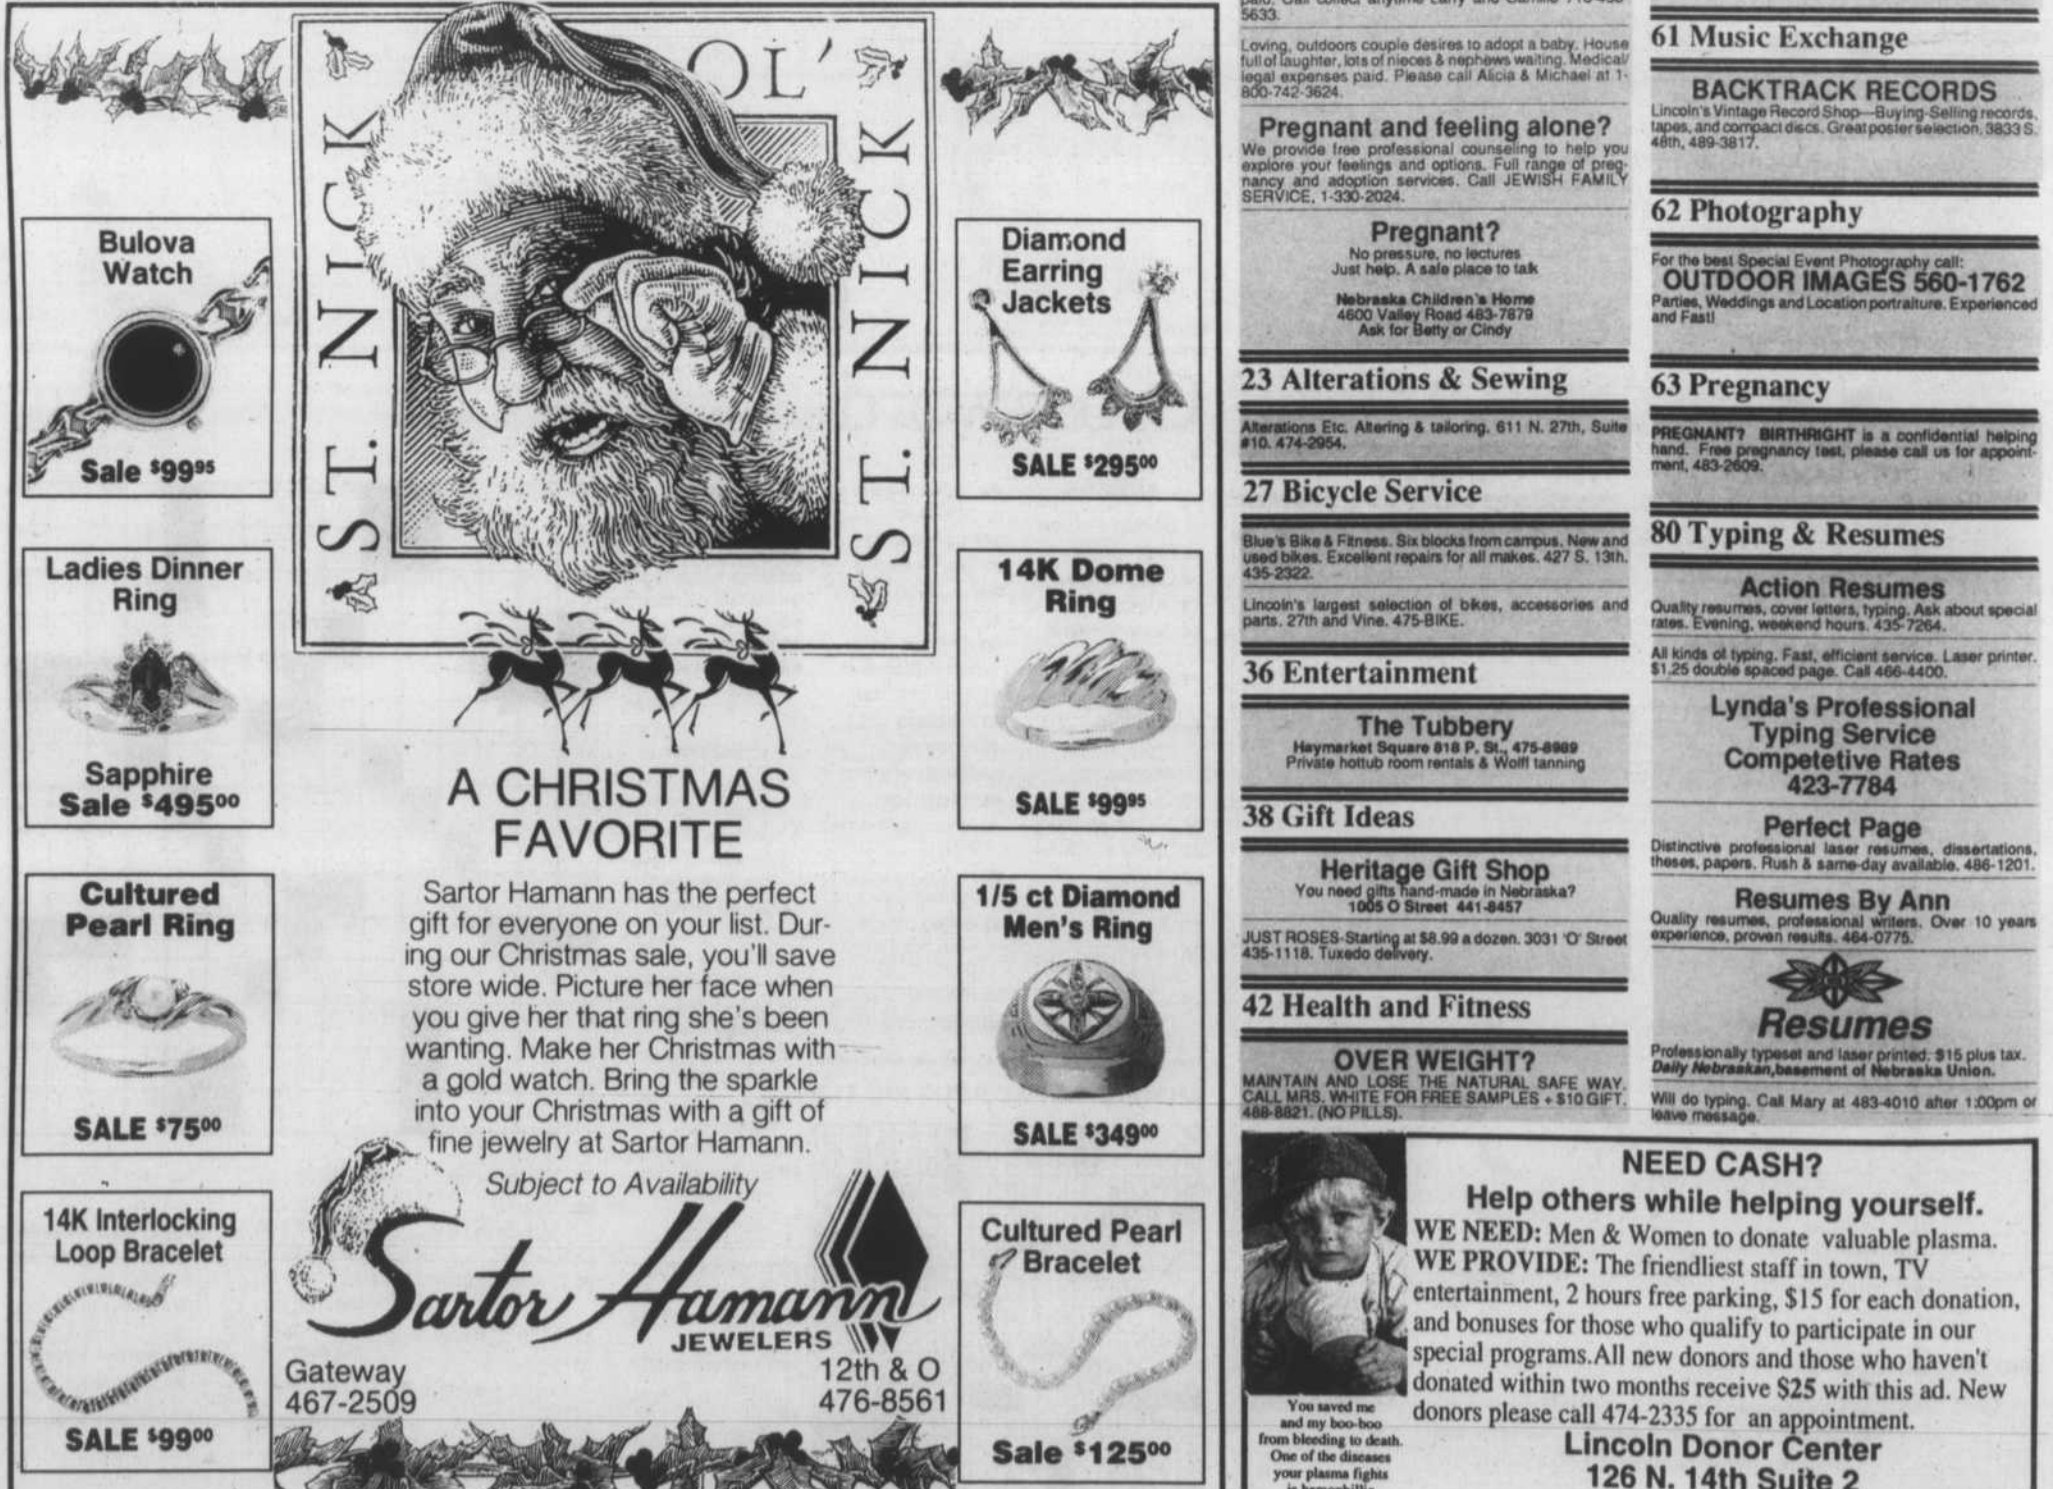 OL'
ST. NICK
ST. NICK
Bulova
Watch
Sale $99⁹⁵
Ladies Dinner
Ring
Sapphire
Sale $495⁰⁰
Cultured
Pearl Ring
SALE $75⁰⁰
14K Interlocking
Loop Bracelet
SALE $99⁰⁰
A CHRISTMAS
FAVORITE
Sartor Hamann has the perfect
gift for everyone on your list. Dur-
ing our Christmas sale, you'll save
store wide. Picture her face when
you give her that ring she's been
wanting. Make her Christmas with
a gold watch. Bring the sparkle
into your Christmas with a gift of
fine jewelry at Sartor Hamann.
Subject to Availability
Sartor Hamann
JEWELERS
Gateway
467-2509
12th & O
476-8561
Diamond
Earring
Jackets
SALE $295⁰⁰
14K Dome
Ring
SALE $99⁹⁵
1/5 ct Diamond
Men's Ring
SALE $349⁰⁰
Cultured Pearl
Bracelet
Sale $125⁰⁰
5633.
Loving, outdoors couple desires to adopt a baby. House
full of laughter, lots of nieces & nephews waiting. Medical/
legal expenses paid. Please call Alicia & Michael at 1-
800-742-3624.
Pregnant and feeling alone?
We provide free professional counseling to help you
explore your feelings and options. Full range of preg-
nancy and adoption services. Call JEWISH FAMILY
SERVICE, 1-330-2024.
Pregnant?
No pressure, no lectures
Just help. A safe place to talk
Nebraska Children's Home
4600 Valley Road 483-7879
Ask for Betty or Cindy
23 Alterations & Sewing
Alterations Etc. Altering & tailoring. 611 N. 27th, Suite
#10. 474-2954.
27 Bicycle Service
Blue's Bike & Fitness. Six blocks from campus. New and
used bikes. Excellent repairs for all makes. 427 S. 13th.
435-2322.
Lincoln's largest selection of bikes, accessories and
parts. 27th and Vine. 475-BIKE.
36 Entertainment
The Tubbery
Haymarket Square 818 P. St., 475-8989
Private hottub room rentals & Wolff tanning
38 Gift Ideas
Heritage Gift Shop
You need gifts hand-made in Nebraska?
1005 O Street 441-8457
JUST ROSES-Starting at $8.99 a dozen. 3031 'O' Street
435-1118. Tuxedo delivery.
42 Health and Fitness
OVER WEIGHT?
MAINTAIN AND LOSE THE NATURAL SAFE WAY.
CALL MRS. WHITE FOR FREE SAMPLES + $10 GIFT.
488-8821. (NO PILLS).
61 Music Exchange
BACKTRACK RECORDS
Lincoln's Vintage Record Shop—Buying-Selling records,
tapes, and compact discs. Great poster selection. 3833 S.
48th, 489-3817.
62 Photography
For the best Special Event Photography call:
OUTDOOR IMAGES 560-1762
Parties, Weddings and Location portraiture. Experienced
and Fast!
63 Pregnancy
PREGNANT? BIRTHRIGHT is a confidential helping
hand. Free pregnancy test, please call us for appoint-
ment, 483-2609.
80 Typing & Resumes
Action Resumes
Quality resumes, cover letters, typing. Ask about special
rates. Evening, weekend hours. 435-7264.
All kinds of typing. Fast, efficient service. Laser printer.
$1.25 double spaced page. Call 466-4400.
Lynda's Professional
Typing Service
Competetive Rates
423-7784
Perfect Page
Distinctive professional laser resumes, dissertations,
theses, papers. Rush & same-day available. 486-1201.
Resumes By Ann
Quality resumes, professional writers. Over 10 years
experience, proven results. 464-0775.
Resumes
Professionally typeset and laser printed. $15 plus tax.
Daily Nebraskan, basement of Nebraska Union.
Will do typing. Call Mary at 483-4010 after 1:00pm or
leave message.
NEED CASH?
Help others while helping yourself.
WE NEED: Men & Women to donate valuable plasma.
WE PROVIDE: The friendliest staff in town, TV
entertainment, 2 hours free parking, $15 for each donation,
and bonuses for those who qualify to participate in our
special programs.All new donors and those who haven't
donated within two months receive $25 with this ad. New
donors please call 474-2335 for an appointment.
Lincoln Donor Center
126 N. 14th Suite 2
You saved me
and my boo-boo
from bleeding to death.
One of the diseases
your plasma fights